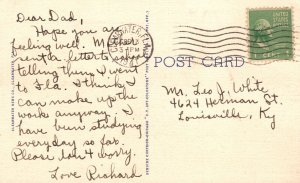 Dear Dad,
Hope you are
feeling well. Mo
sent a letter to school
telling them I went
to Fla. I think I
can make up the
work anyway. I
have been studying
everyday so far.
Please don't worry.
Love Richard
CLEARWATER
POST CARD
Mr. Leo J. White
4624 Herman St.
Louisville, Ky